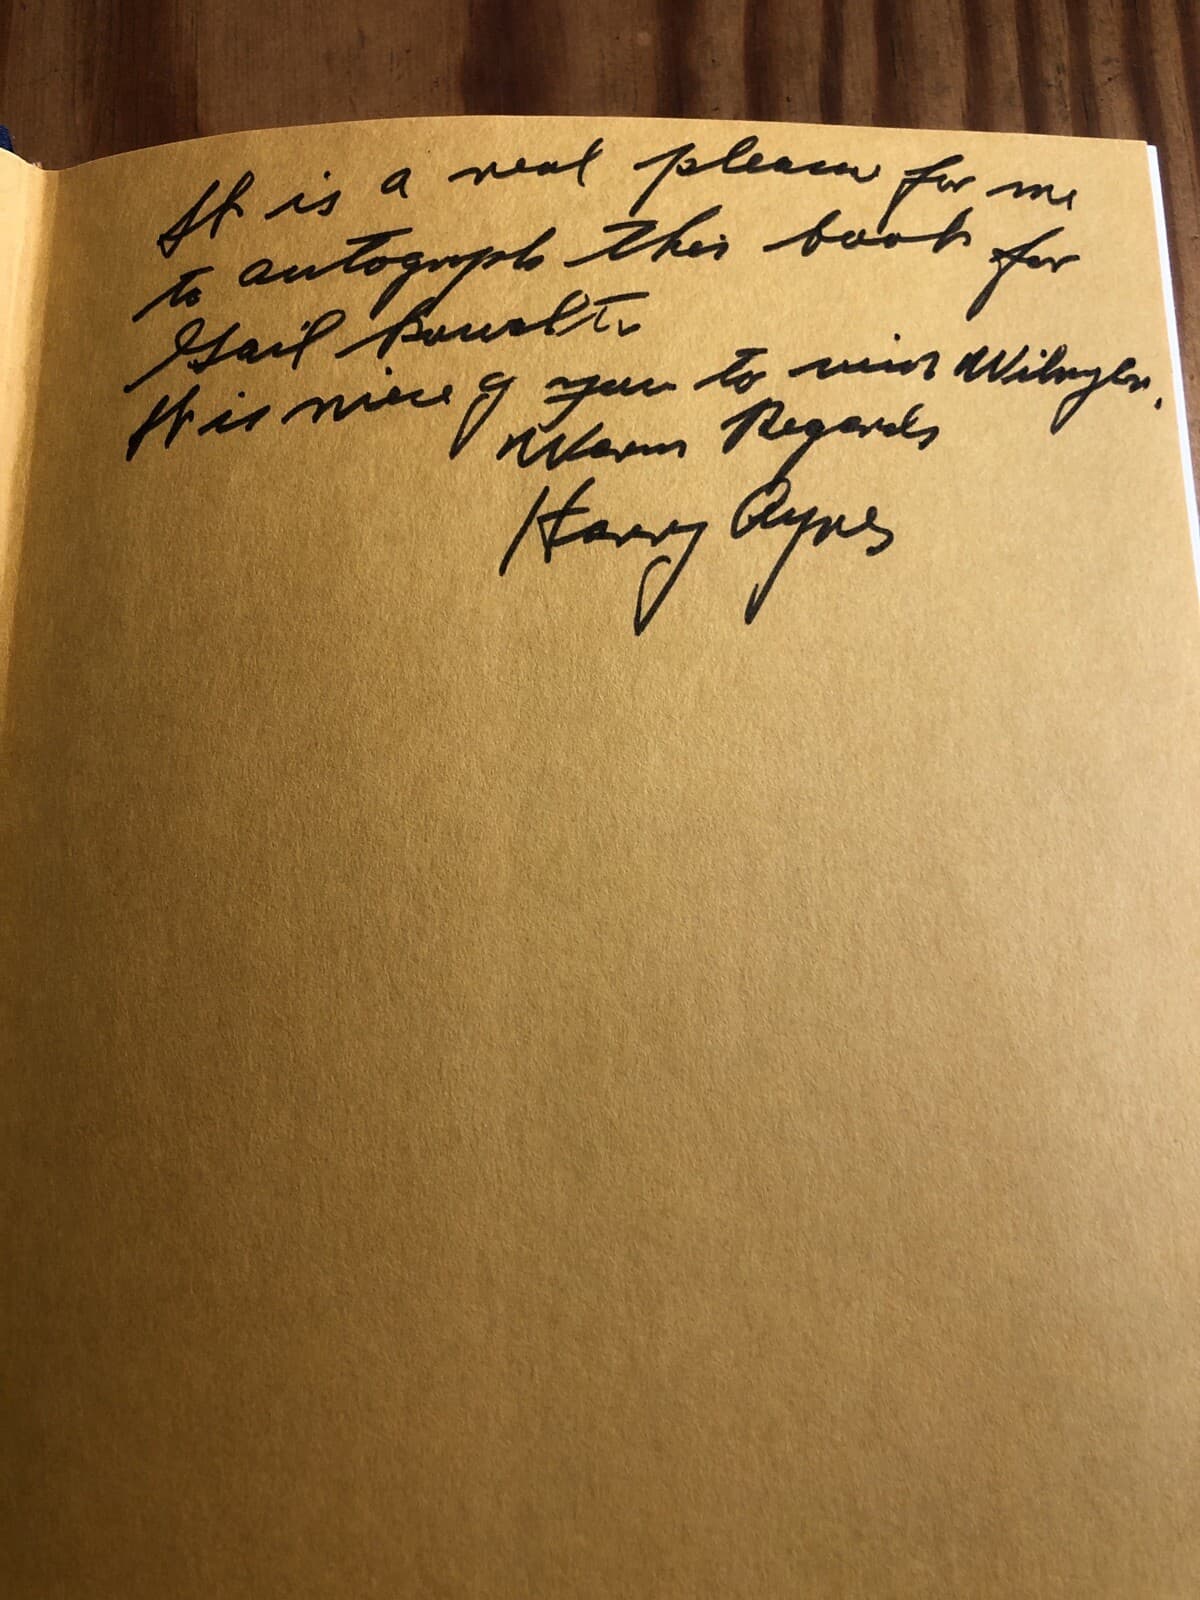 It is a real pleasure for me
to autograph this book for
Gail
It is niece of you to visit
Warm Regards
Harry Ayres